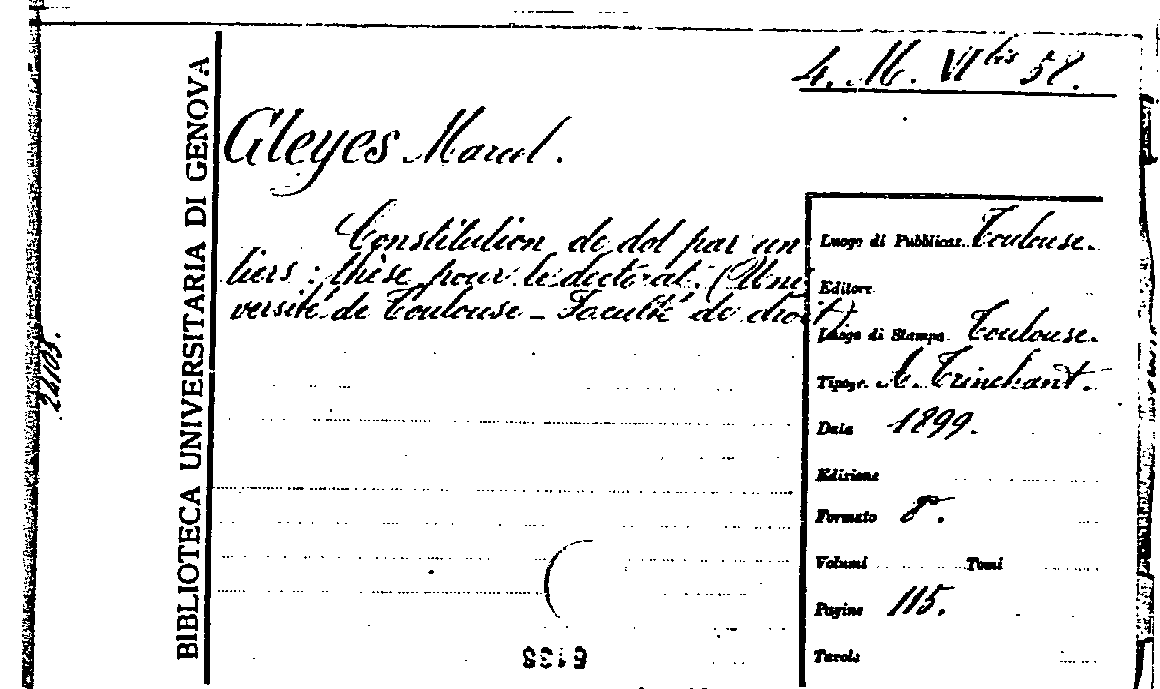 4. M. VI bis 58.
BIBLIOTECA UNIVERSITARIA DI GENOVA
Gleyes Marcel.
Constitution de dot par un
tiers : thèse pour le doctorat. (Uni
versité de Toulouse - Faculté de droit)
Luogo di Pubblicaz. Toulouse.
Editore
Luogo di Stampa Toulouse.
Tipogr. C. Trinchant.
Data 1899.
Edizione
Formato 8º.
Volumi Tomi
Pagine 115.
Tavole
24105.